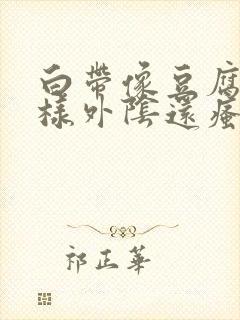 白帶像豆腐
樣外陰還瘙
祁正華